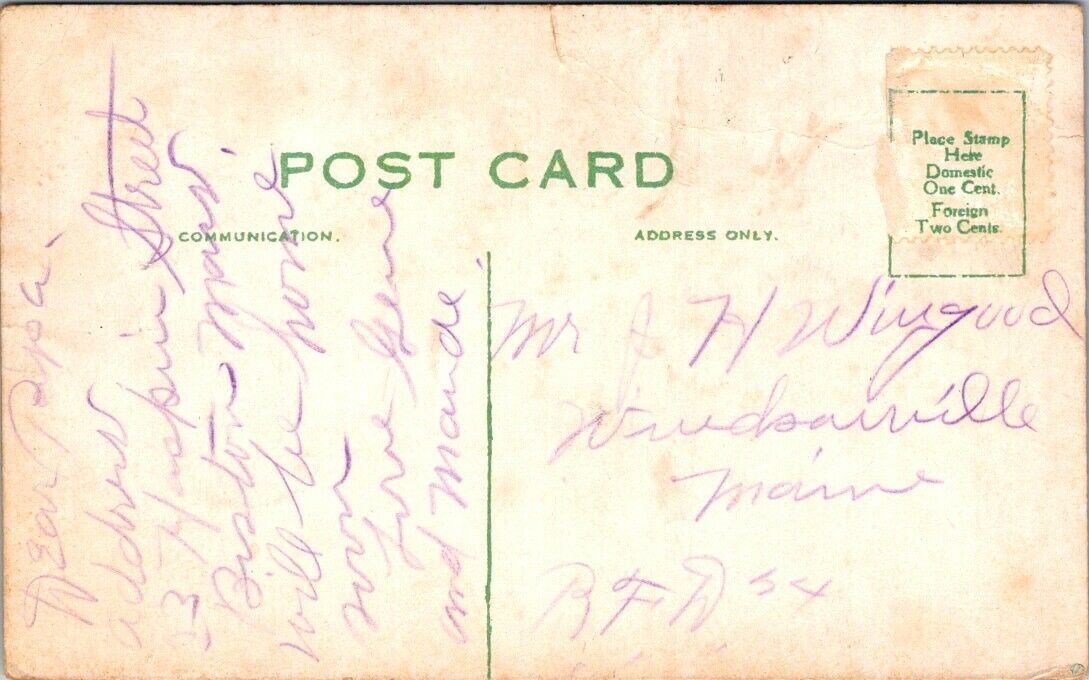 POST CARD
COMMUNICATION.
ADDRESS ONLY.
Place Stamp
Here
Domestic
One Cent.
Foreign
Two Cents.
Dear Papa.
address
Street
Boston Mass.
will be home
soon
Love Gene
and Maude.
Mr J H Wingood
Windsorville
Maine
RFD